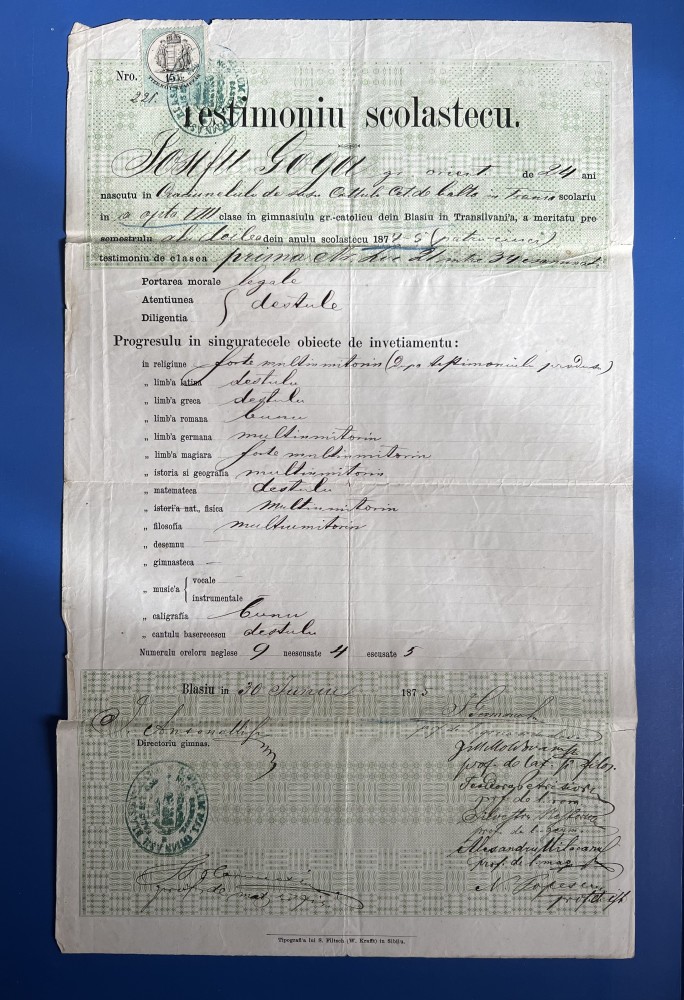 Nro.
221.
15 kr.
Testimoniu scolastecu.
Iosifu Goga gr. orient. de 24 ani
nascutu in de susu Cet. de balta in Trans. scolariu
in a opta VIII clase in gimnasiulu gr.-catolicu dein Blasiu in Transilvani'a, a meritatu pre
semestrulu alu doilea dein anulu scolastecu 1874-5 (patru-cinci)
testimoniu de clasea prima Nr. loc. 21 intre 34
Portarea morale legale
Atentiunea
destule
Diligentia
Progresulu in singuratecele obiecte de invetiamentu:
in religiune forte multiumitoriu (Dupa testimoniulu produsu)
„ limb'a latina destulu
„ limb'a greca destulu
„ limb'a romana bunu
„ limb'a germana multiumitoriu
„ limb'a magiara forte multiumitoriu
„ istoria si geografia multiumitoriu
„ matemateca destulu
„ istori'a nat., fisica multiumitoriu
„ filosofia multiumitoriu
„ desemnu —
„ gimnasteca —
„ music'a { vocale —
instrumentale —
„ caligrafia bunu
„ cantulu baserecescu destulu
Numerulu oreloru neglese 9 neescusate 4 escusate 5
Blasiu in 30 Juniu 1875
I. Antonelli
Directoriu gimnas.
I. M. Moldovanu
prof. de lat. si filos.
Teodoru Petrisioru
prof. de l. rom.
Silvestru
prof. de l. germ.
Alesandru
prof. de l. mag.
N. Popescu
prof. de
prof. de mat.
Tipografi'a lui S. Filtsch (W. Krafft) in Sibiiu.